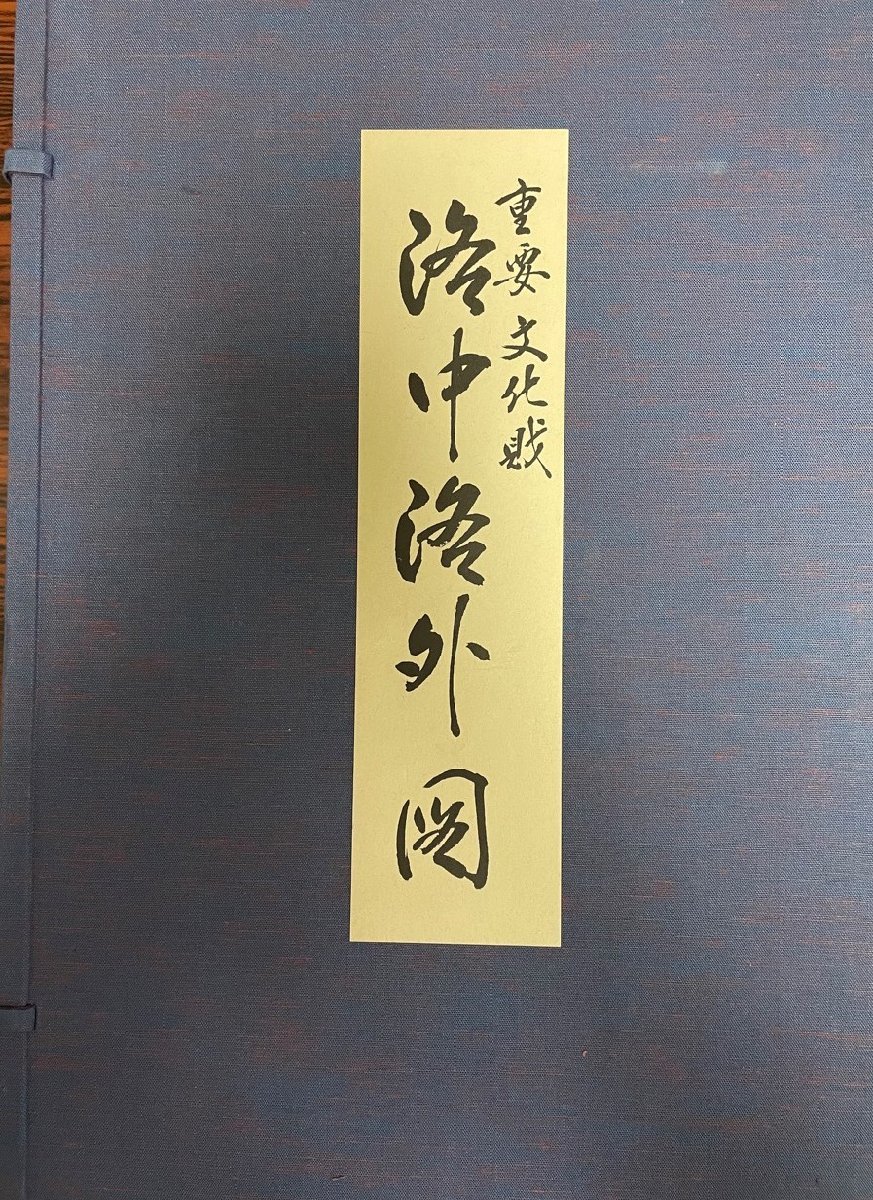 重要文化財
洛中洛外図